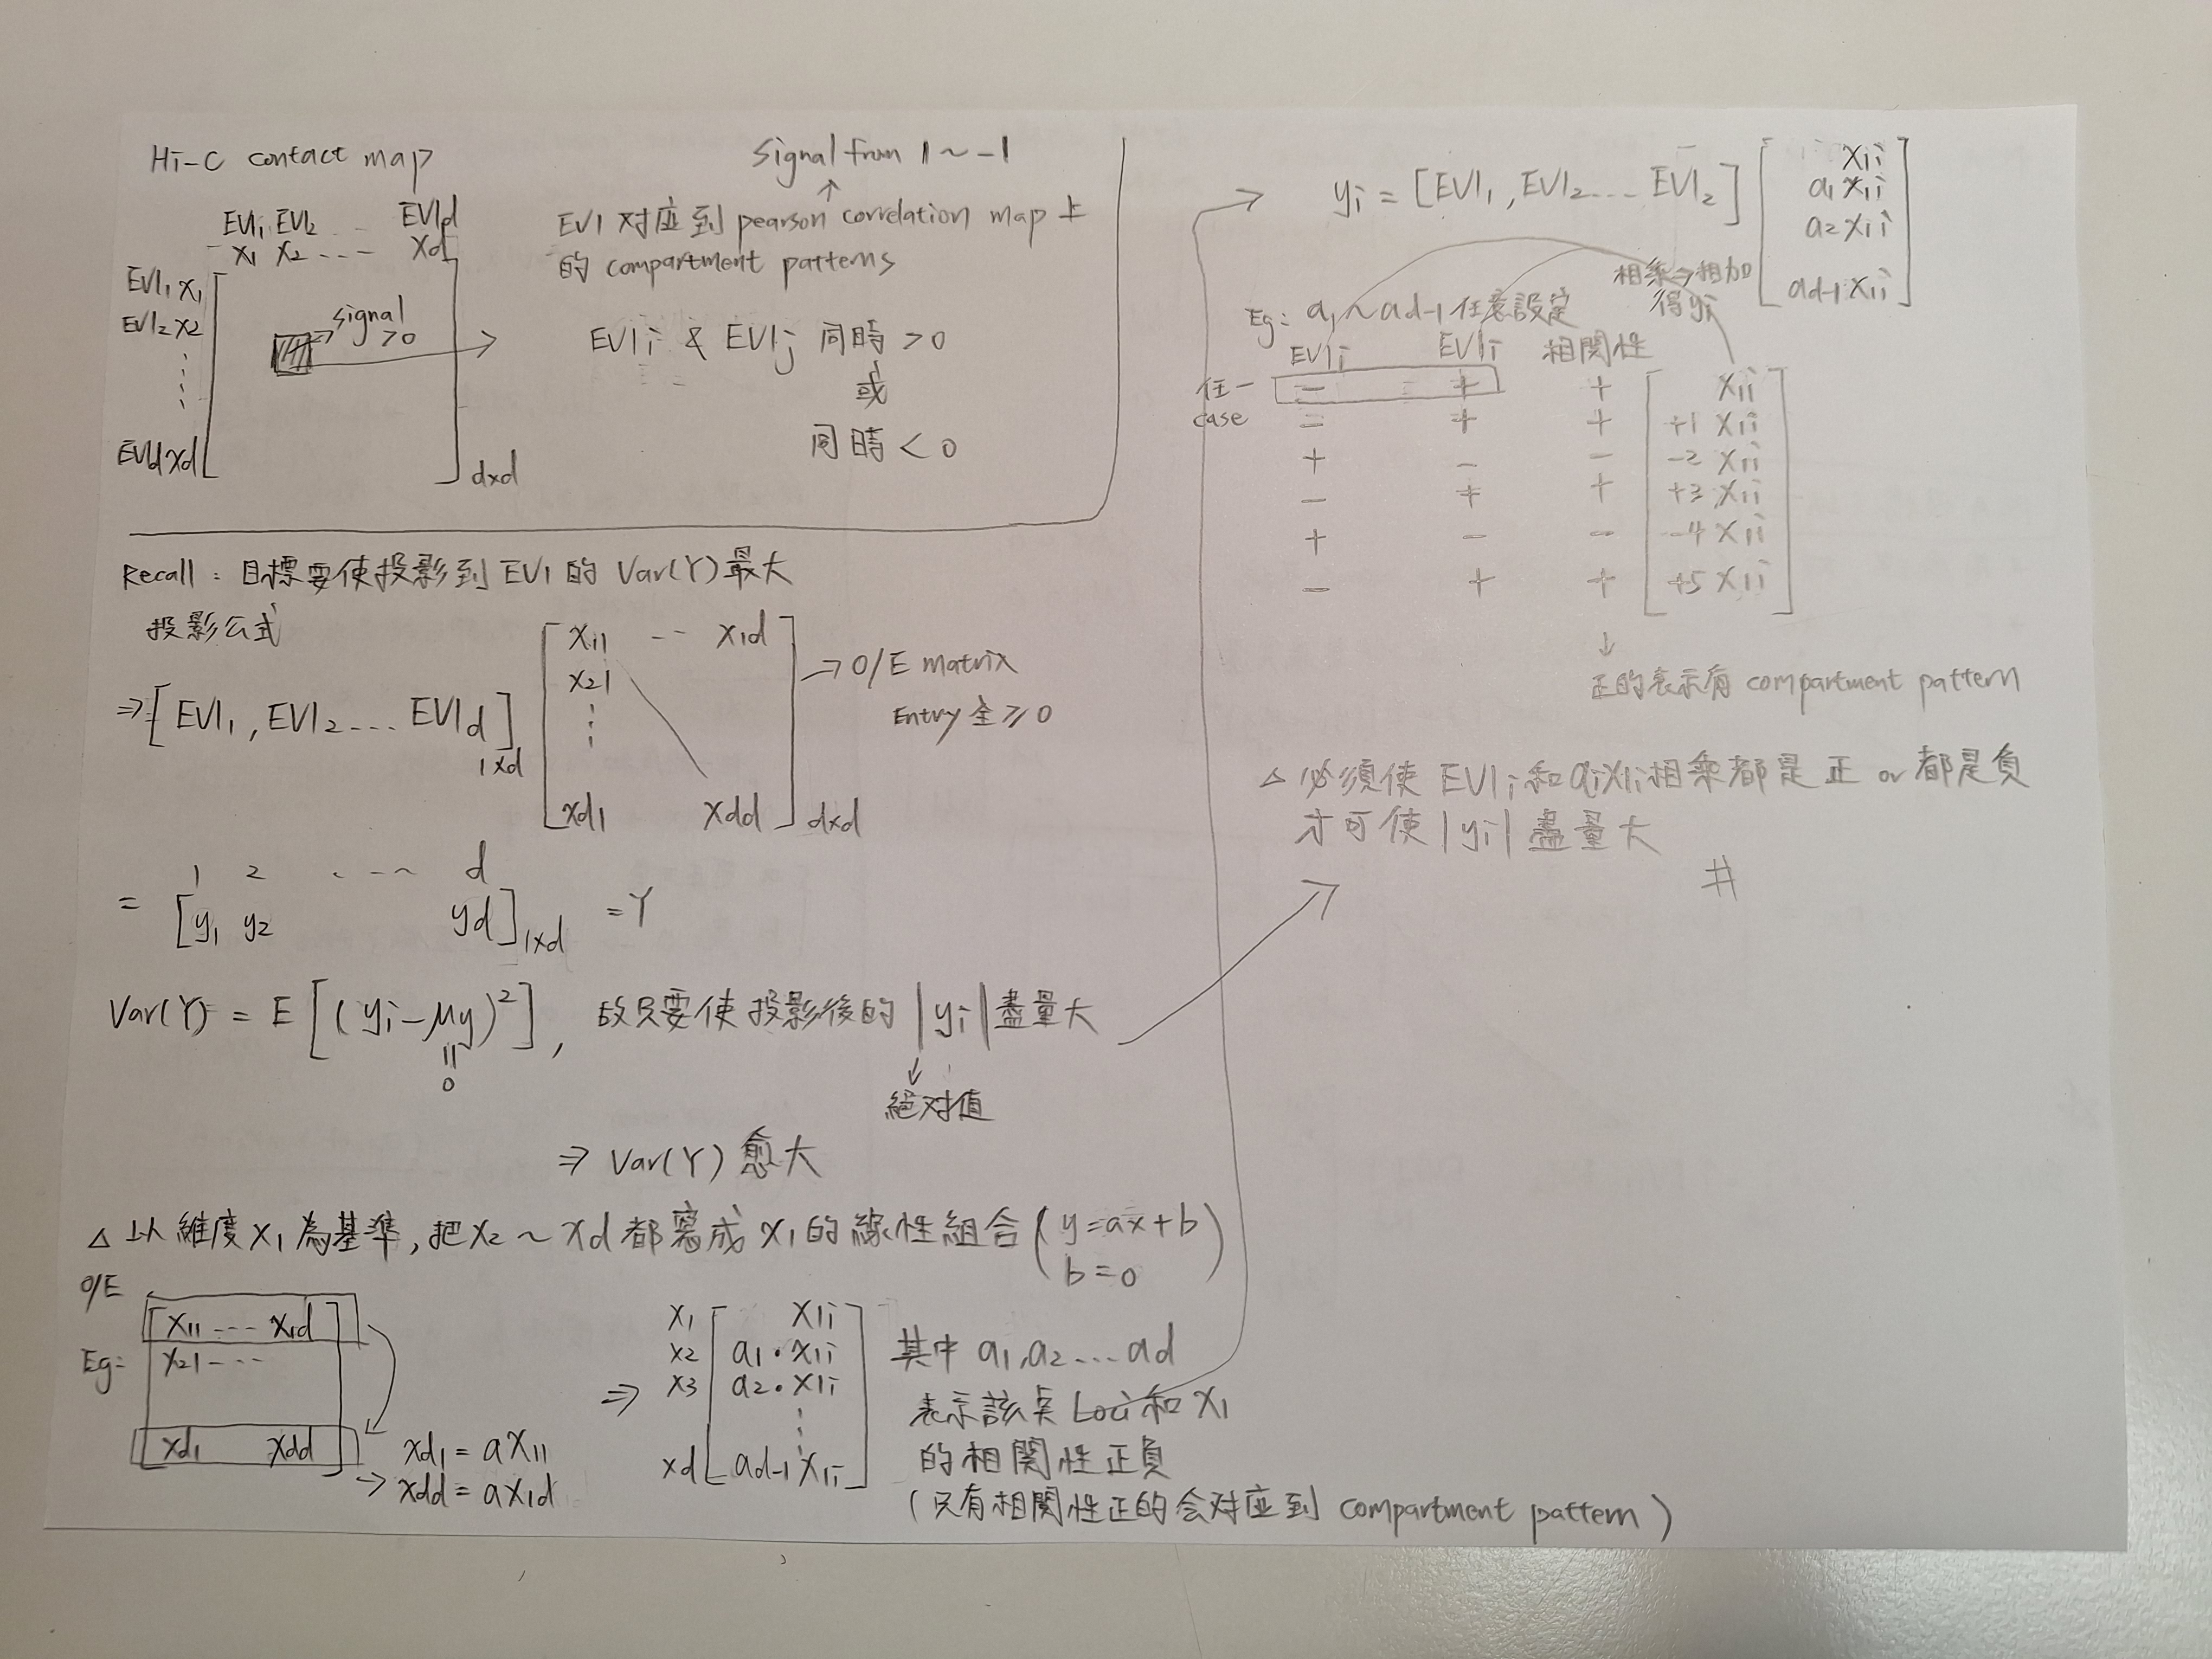 Hi-C contact map
signal from 1 ~ -1
EV1₁ EV1₂ ... EV1d
x₁ x₂ ... xd
EV1₁ x₁
EV1₂ x₂
EV1d xd
signal >0
dxd
EV1 对应到 pearson correlation map 上
的 compartment patterns
EV1i & EV1j 同時 >0
或
同時 < 0
Recall : 目標要使投影到 EV1 的 Var(Y) 最大
投影公式
⇒ [EV1₁, EV1₂ ... EV1d] 1xd
[x₁₁ -- x₁d
x₂₁
xd1 xdd] dxd
→ O/E matrix
Entry 全 ≥ 0
1 2 . -- ~ d
= [y₁ y₂ yd] 1xd = Y
Var(Y) = E[(yi-μy)²], 故只要使投影後的 |yi| 盡量大
=
0
↓
絕对值
⇒ Var(Y) 愈大
△ 以維度 x₁ 為基準, 把 x₂ ~ xd 都寫成 x₁ 的線性組合 (y=ax+b
b=0)
O/E
Eg:
[x₁₁ --- x₁d]
x₂₁ ---
[xd₁ xdd]
xd₁ = ax₁₁
→ xdd = ax₁d
⇒
x₁ [ x₁i
x₂ a₁·x₁i
x₃ a₂·x₁i
xd ad-1 x₁i ]
其中 a₁,a₂...ad
表示該点 Loci 和 x₁
的相関性正負
(只有相関性正的会对应到 compartment pattern)
yi = [EV1₁, EV1₂ ... EV1₂] [ x₁i
a₁x₁i
a₂x₁i
ad-1 x₁i ]
相乘→相加
得 yi
Eg: a₁~ad-1 任意設定
EV1i EV1i 相関性
任一 − + + [ x₁i
case − + + +1 x₁i
+ − − -2 x₁i
− + + +3 x₁i
+ − − -4 x₁i
− + + +5 x₁i ]
↓
正的表示有 compartment pattern
△ 必須使 EV1i 和 aix1i 相乘都是正 or 都是負
才可使 |yi| 盡量大
#